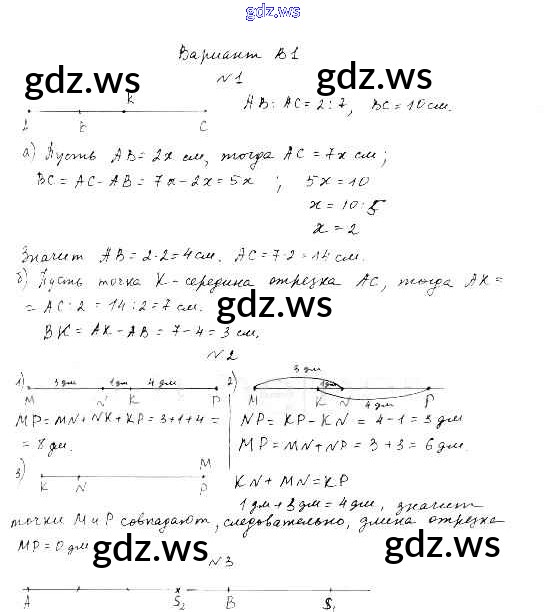 gdz.ws
Вариант В1
№1
gdz.ws
gdz.ws
К
АВ : АС = 2 : 7, ВС = 10 см.
А В С
а) Пусть АВ = 2х см, тогда АС = 7х см;
ВС = АС - АВ = 7х - 2х = 5х ; 5х = 10
х = 10 : 5
х = 2
Значит АВ = 2·2 = 4 см. АС = 7·2 = 14 см.
б) Пусть точка К - середина отрезка АС, тогда АК =
= АС : 2 = 14 : 2 = 7 см.
gdz.ws
ВК = АК - АВ = 7 - 4 = 3 см.
№2
1) 3 дм 1 дм 4 дм
M N K P
2) 3 дм
1 дм
M K N P
4 дм
MP = MN + NK + KP = 3 + 1 + 4 =
= 8 дм.
NP = KP - KN = 4 - 1 = 3 дм
MP = MN + NP = 3 + 3 = 6 дм.
3) M
K N P
KN + MN = KP
1 дм + 3 дм = 4 дм, значит
точки M и P совпадают, следовательно, длина отрезка
MP = 0 дм
gdz.ws
gdz.ws
№3
A S2 B S1